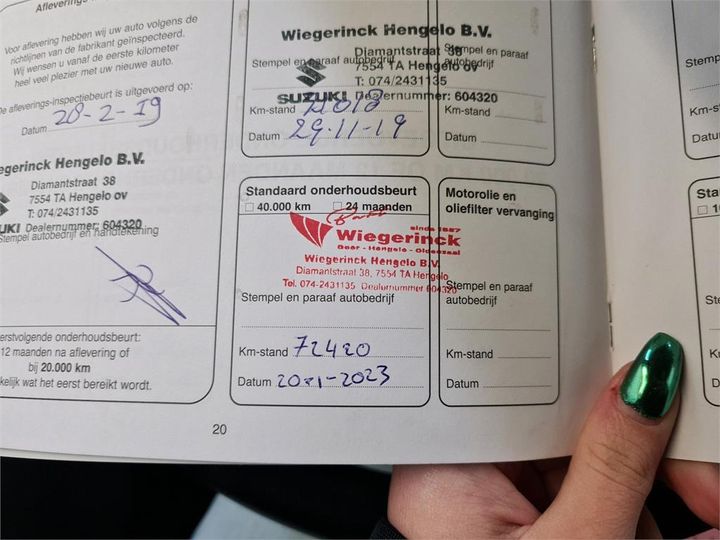 Aflevering
Voor aflevering hebben wij uw auto volgens de
richtlijnen van de fabrikant geïnspecteerd.
Wij wensen u vanaf de eerste kilometer
heel veel plezier met uw nieuwe auto.
De afleverings-inspectiebeurt is uitgevoerd op:
Datum 28-2-19
Wiegerinck Hengelo B.V.
Diamantstraat 38
7554 TA Hengelo ov
T: 074/2431135
SUZUKI Dealernummer: 604320
Stempel autobedrijf en handtekening
Eerstvolgende onderhoudsbeurt:
12 maanden na aflevering of
bij 20.000 km
wat het eerst bereikt wordt.
Wiegerinck Hengelo B.V.
Diamantstraat 38
Stempel en paraaf autobedrijf
7554 TA Hengelo ov
T: 074/2431135
SUZUKI Dealernummer: 604320
Km-stand
Datum 29-11-19
Stempel en paraaf
autobedrijf
Km-stand
Datum
Standaard onderhoudsbeurt
40.000 km 24 maanden
sinds 1887
Wiegerinck
Goor - Hengelo - Oldenzaal
Wiegerinck Hengelo B.V.
Diamantstraat 38, 7554 TA Hengelo
Tel. 074-2431135 Dealernummer 604320
Stempel en paraaf autobedrijf
Km-stand 72420
Datum 20-1-2023
Motorolie en
oliefilter vervanging
Stempel en paraaf
autobedrijf
Km-stand
Datum
20
Stemp
Km-sta
Datum
Sta
Stemp
Km-st
Datum